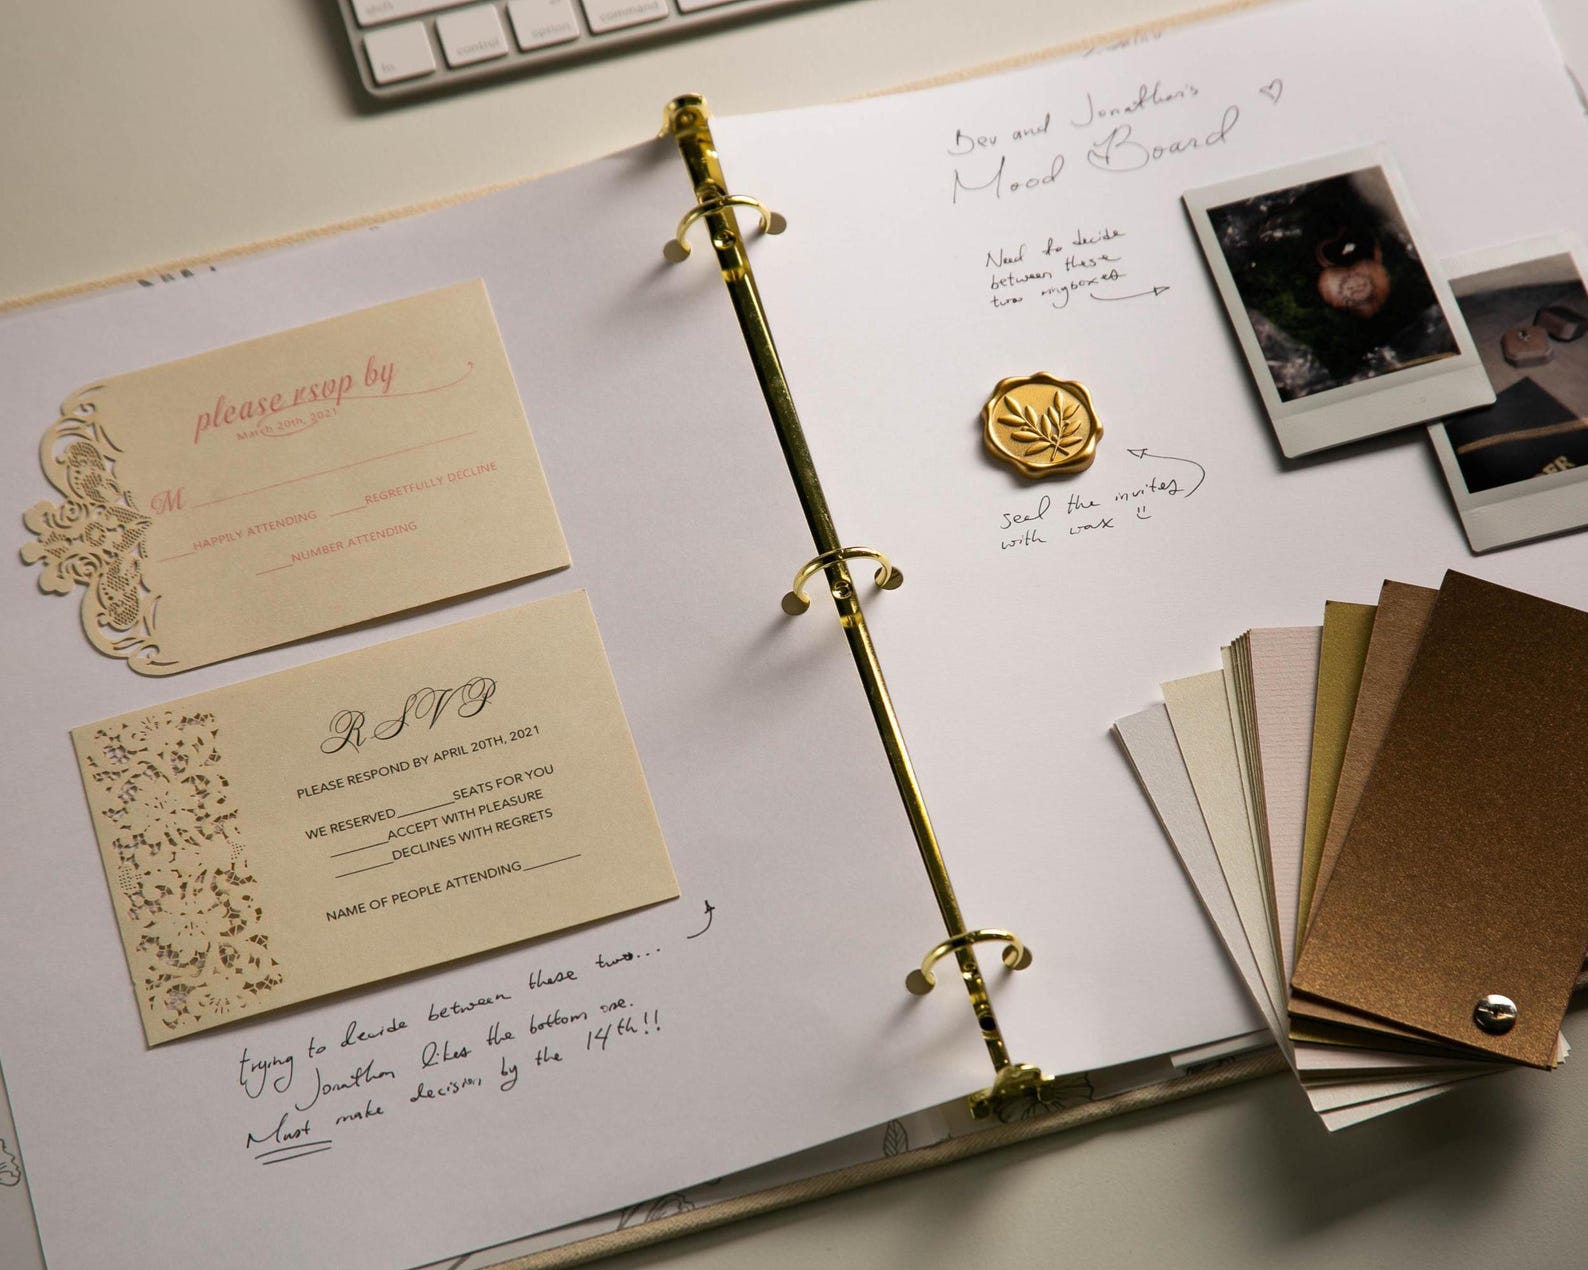 shift
fn
control
option
alt
command
please rsvp by
March 20th, 2021
M
HAPPILY ATTENDING
REGRETFULLY DECLINE
NUMBER ATTENDING
RSVP
PLEASE RESPOND BY APRIL 20TH, 2021
WE RESERVED______SEATS FOR YOU
______ACCEPT WITH PLEASURE
______DECLINES WITH REGRETS
NAME OF PEOPLE ATTENDING______
trying to decide between these two...
Jonathan likes the bottom one.
Must make decision by the 14th!!
Bev and Jonathan's
Mood Board
Need to decide
between these
two ringboxes
seal the invites
with wax